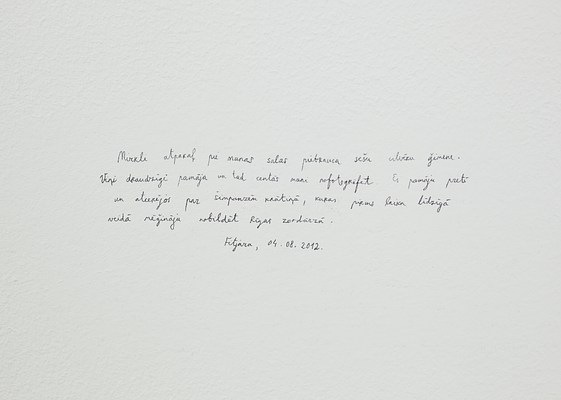 Mirkli atpakaļ pie manas salas piebrauca sešu cilvēku ģimene.
Viņi draudzīgi pamāja un tad centās mani nofotografēt. Es pamāju pretī
un atcerējos par šimpanzēm krātiņā, kuras pirms laika līdzīgā
veidā mēģināju nobildēt Rīgas zoodārzā.
Fitjara, 04.08.2012.